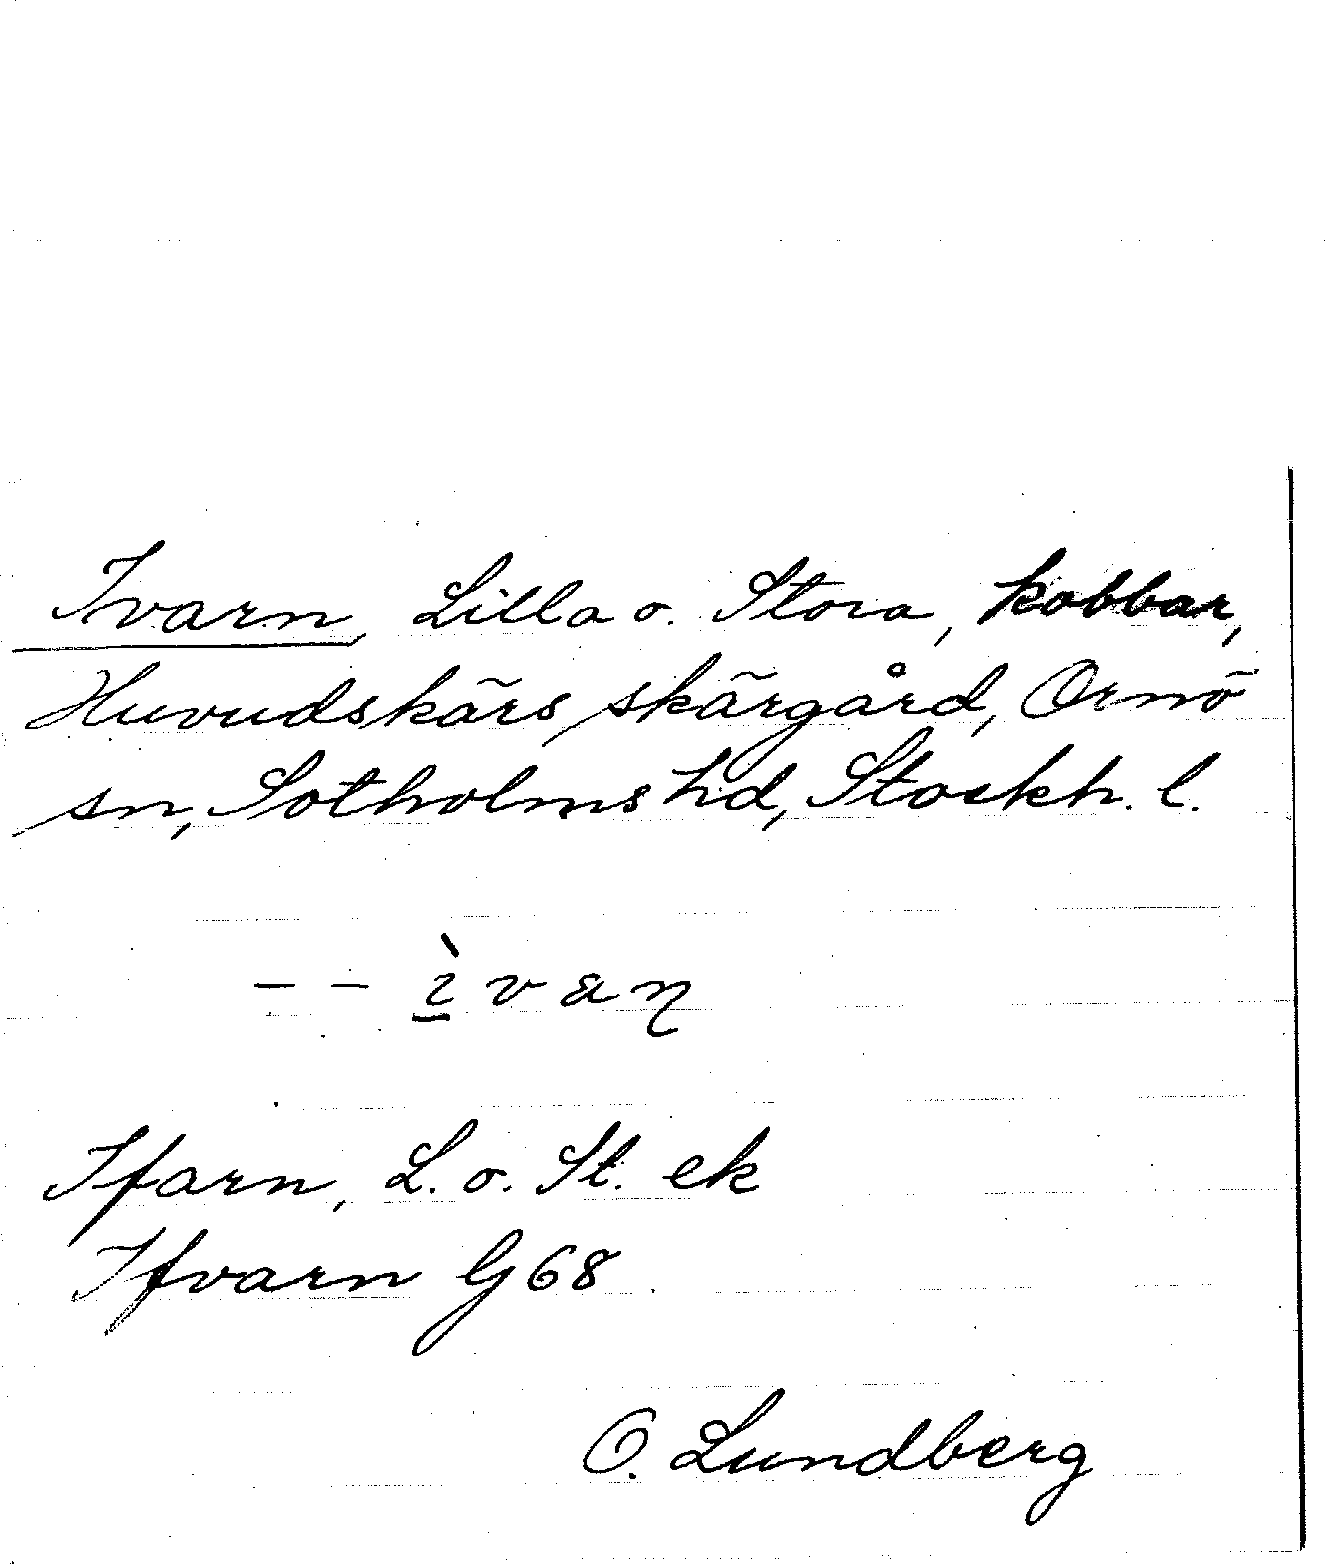 Ivarn, Lilla o. Stora, kobbar,
Huvudskärs skärgård, Ornö
sn, Sotholms hd, Stockh. l.
– – ì̱ v a ɳ
Ifarn, L. o. St. ek
Ifvarn G 68
O. Lundberg